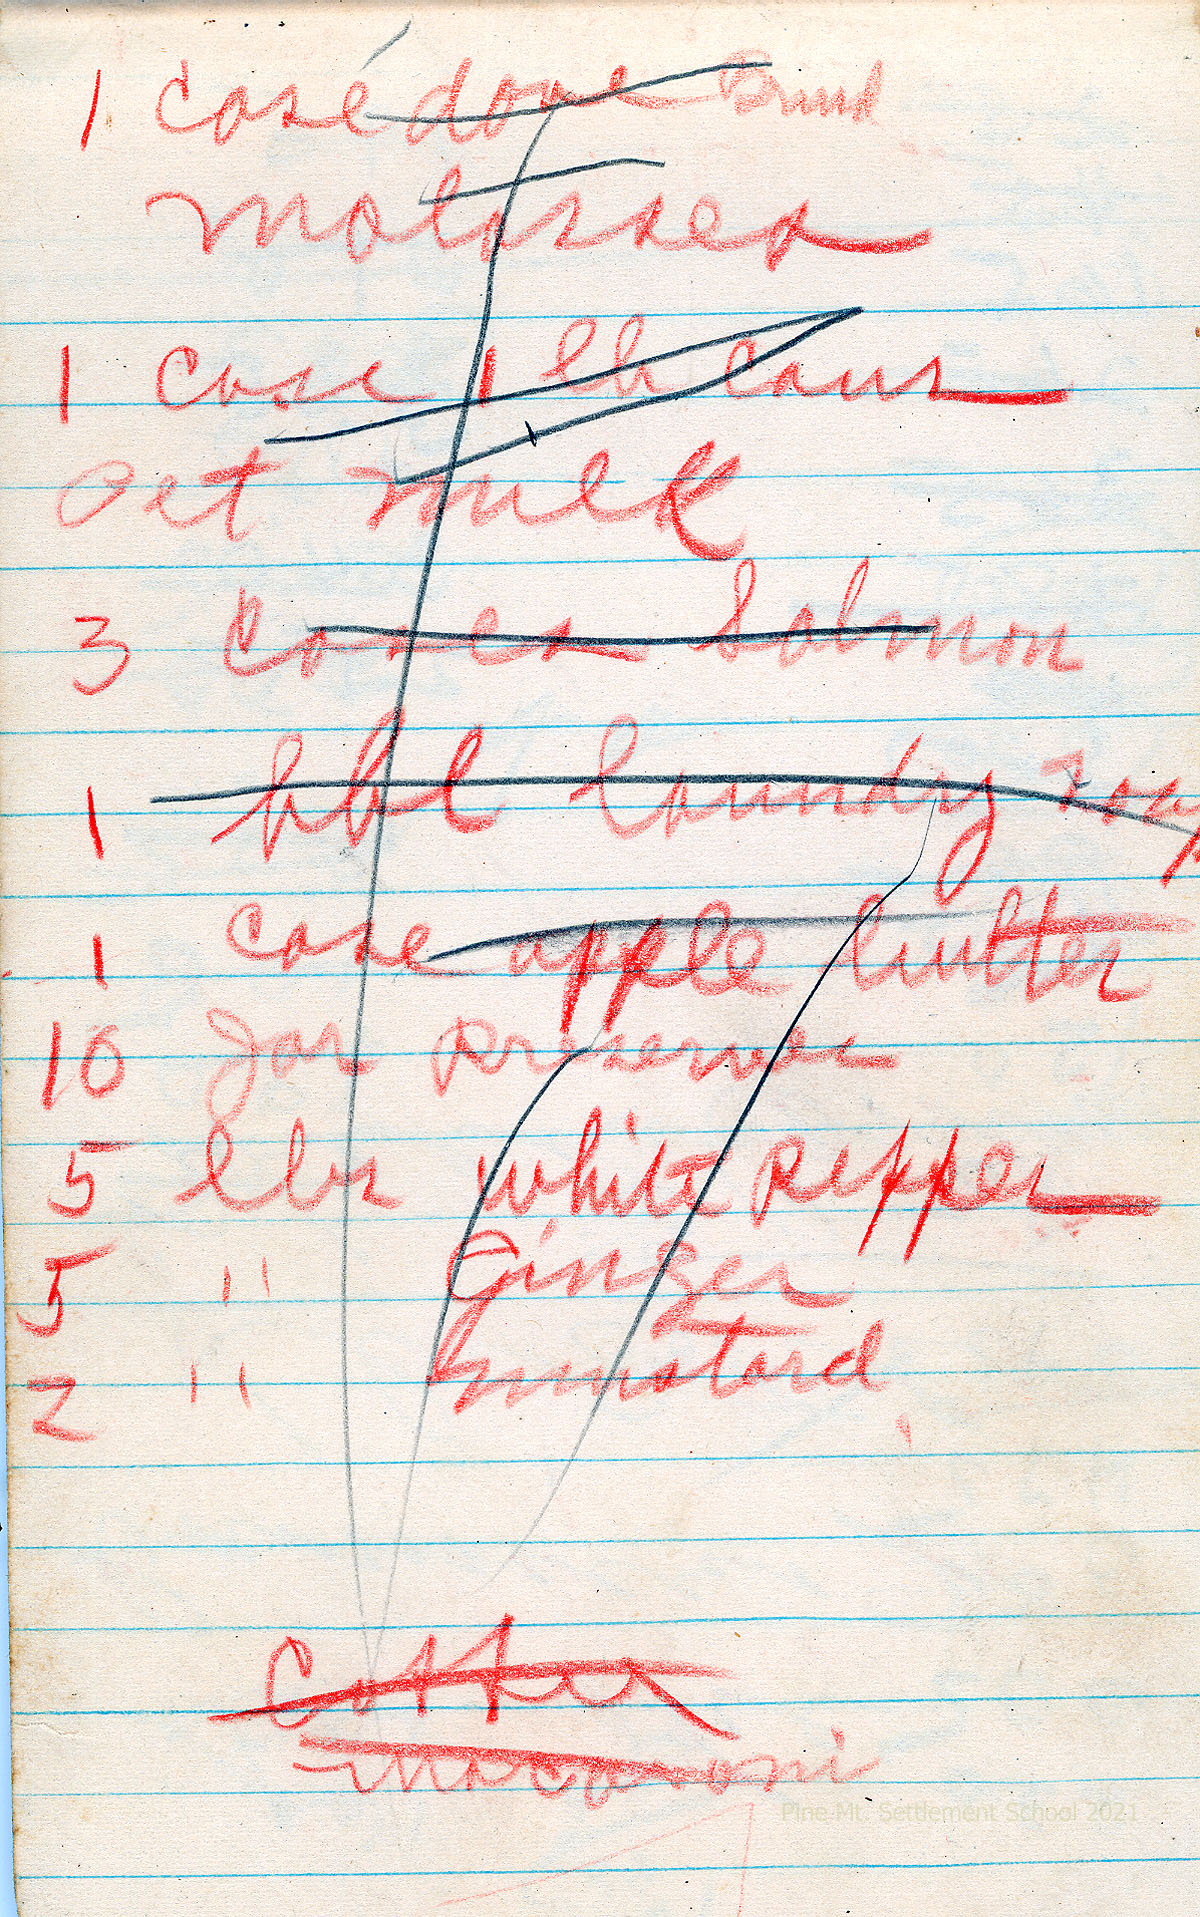 1 Case dove Brand
molasses
1 Case 1 lb cans
Pet milk
3 Cases Salmon
1 bbl laundry soap
1 case apple butter
10 Jar Preserves
5 lbs white Pepper
5 " Ginger
2 " mustard
Coffee
macaroni
Pine Mt. Settlement School 2021